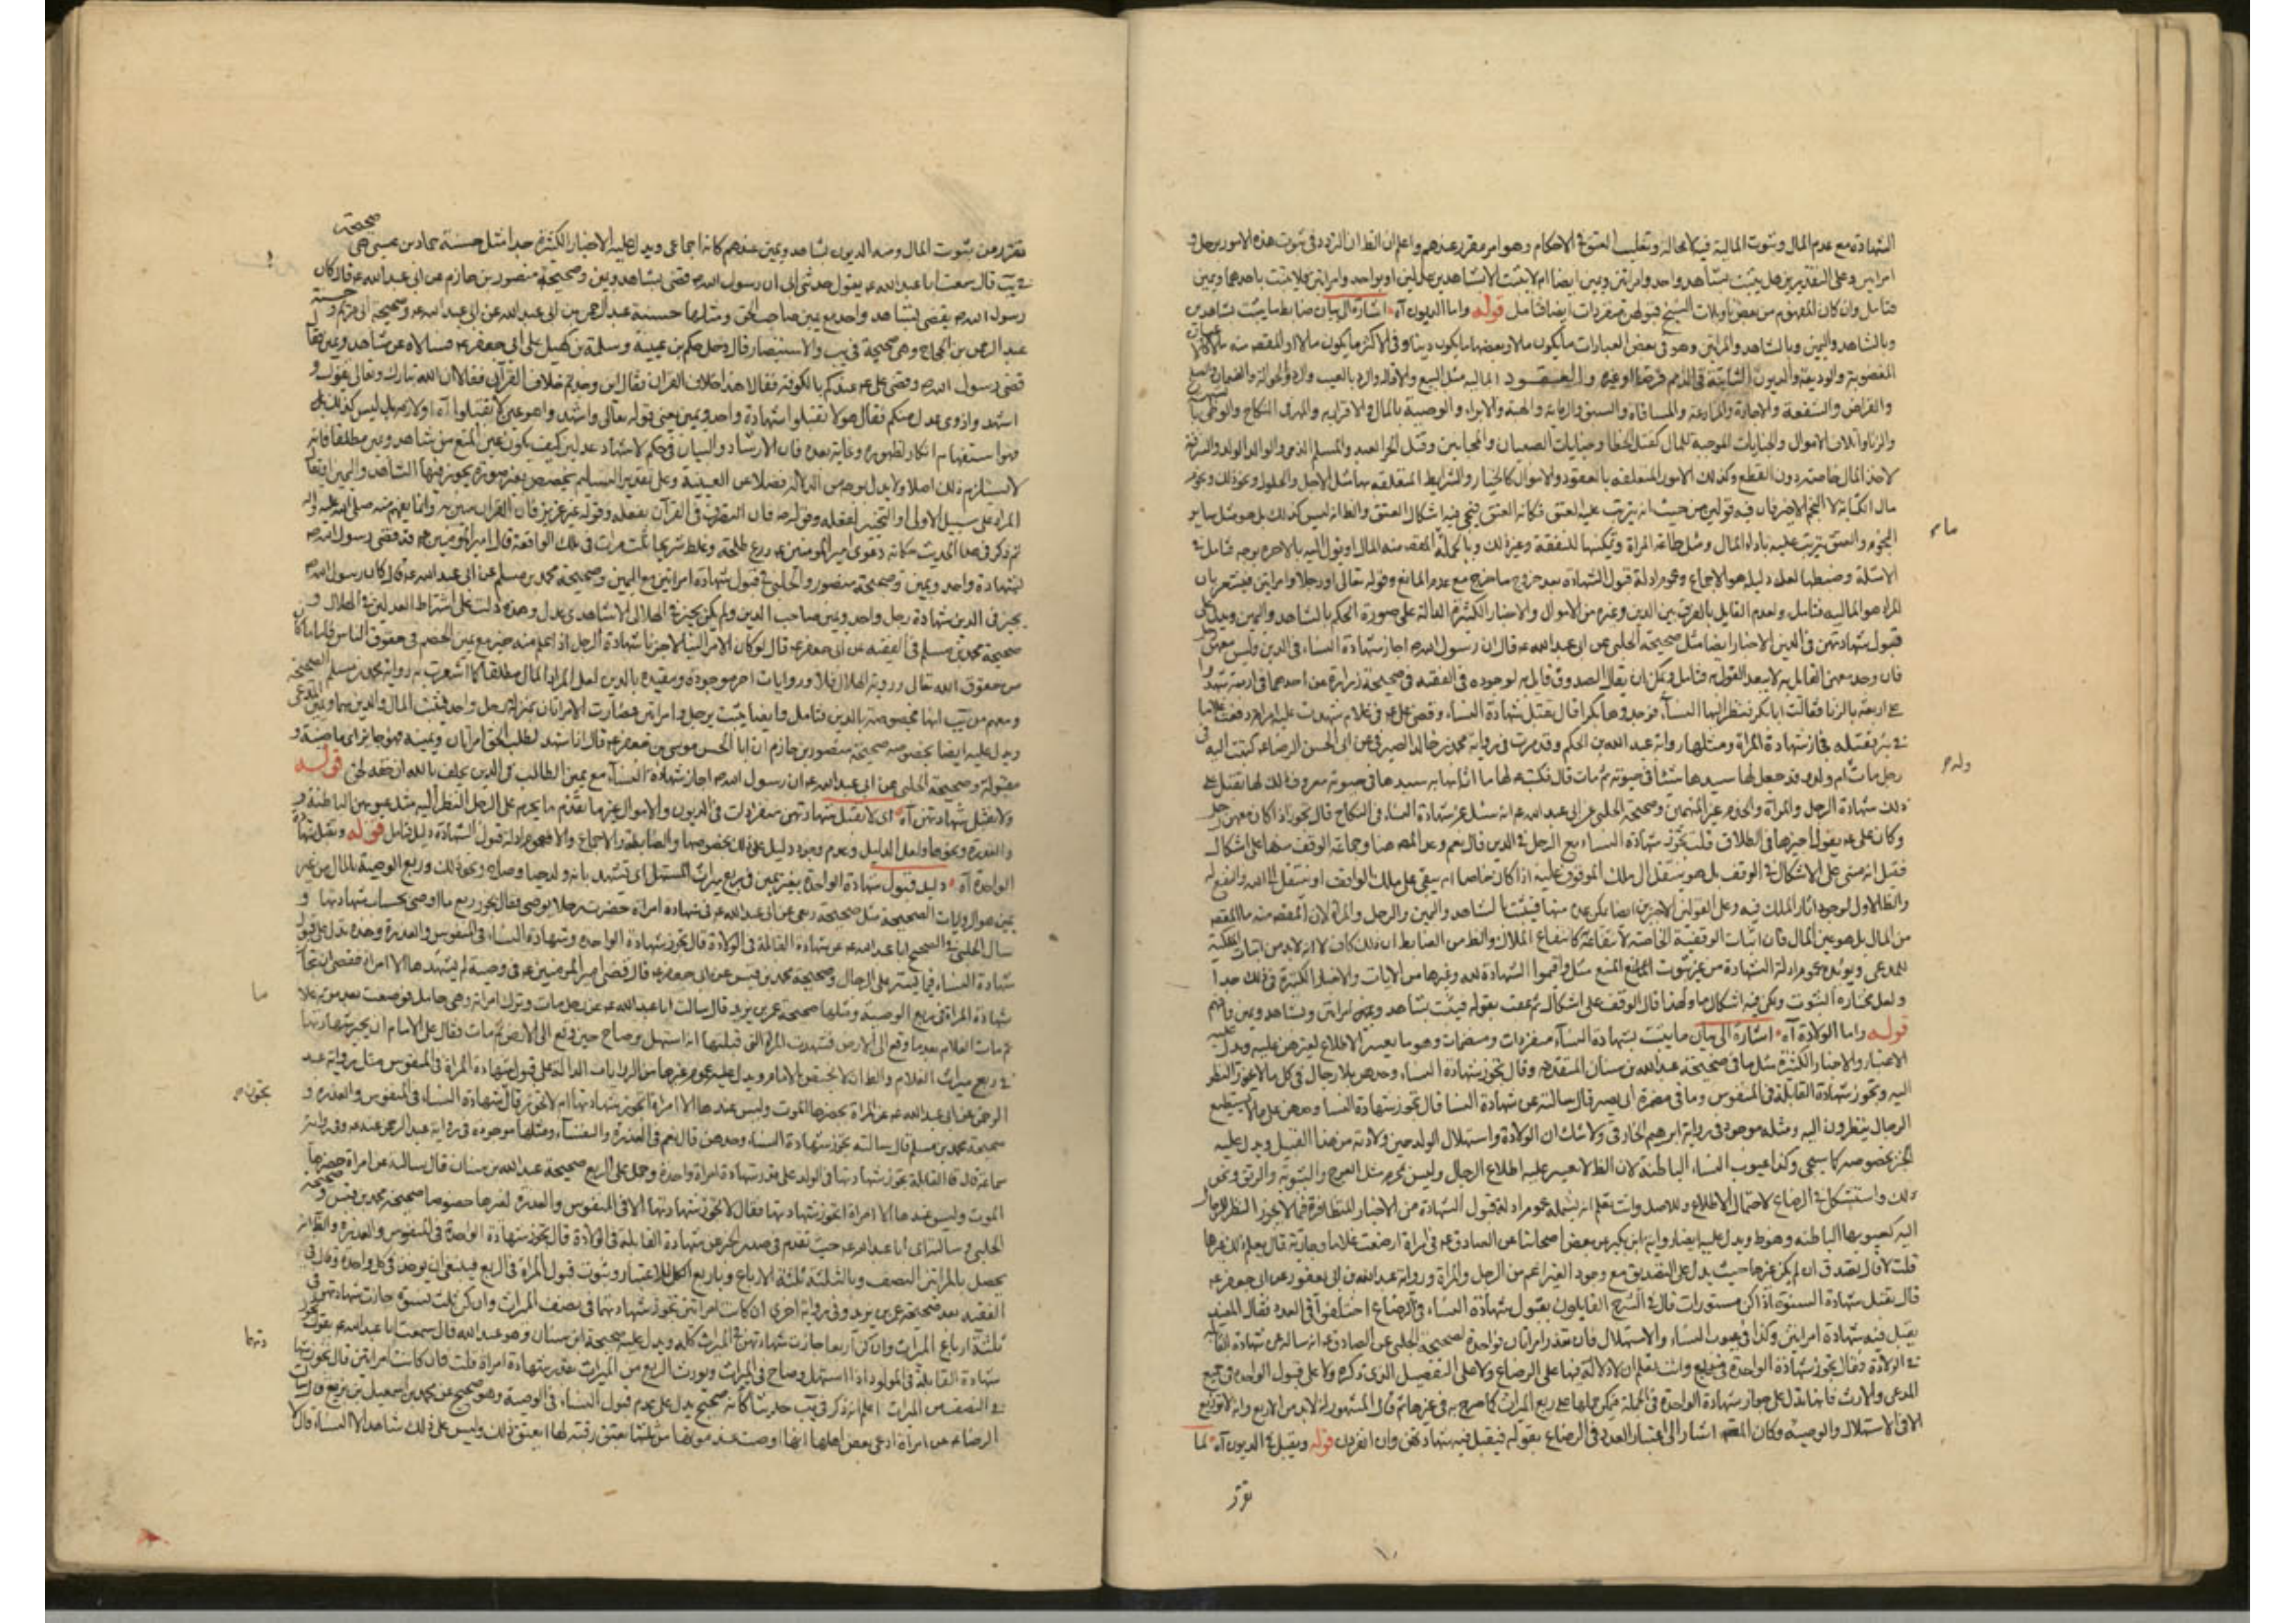 الشهادة مع عدم المال وثبوت المالية فيه لا محالة وتغليب العتق في الاحكام وهو امر مقرر عندهم واعلم ان الظ ان التردد في ثبوت هذه الامور برجل و
امراتين وعلى التقديرين هل يثبت بشاهد واحد وامراتين ويمين ايضا ام لا يثبت الا بشاهدين عدلين او بواحد وامراتين فلا يثبت باحدهما ويمين
فتامل وان كان المفهوم من بعض تاويلات الشيخ قبولهن منفردات ايضا فتامل قوله واما الديون آه اشارة الى بيان ضابط ما يثبت بشاهدين
وبالشاهد واليمين وبالشاهد والمراتين وهو في بعض العبارات ما يكون مالا وبعضها ما يكون دينا وفي الاكثر ما يكون مالا او المقصد منه
المغصوبة والوديعة والديون الثابتة في الذمم قرضا او غيره والعقود المالية مثل البيع والاقالة والرد بالعيب والحوالة والضمان والصلح
والقراض والشفعة والاجارة والمزارعة والمساقاة والسبق والرماية والهبة والابراء والوصية بالمال والاقرار به والمهر في النكاح
والزنا واتلاف الاموال والجنايات الموجبة للمال كقتل الخطا وجنايات الصبيان والمجانين وقتل الحر العبد والمسلم الذمي والوالد الولد والسرقة
لاخذ المال خاصة دون القطع وكذلك الامور المتعلقة بالعقود والاموال كالخيار والشرايط المتعلقة بها مثل الاجل والحلول ونحو ذلك ونجوم
مال الكتابة لا النجم الاخير فان فيه قولين من حيث انه يترتب عليه العتق فكانه العتق فيجي فيه اشكال العتق والظ انه ليس كذلك بل هو مثل ساير
النجوم والعتق يترتب عليه باداء المال ومثل طاعة المراة وتمكينها للنفقة وغير ذلك وبالجملة المقصد منه المال او يؤل اليه بالاخرة بوجه فتامل في
الامثلة وضبطها لعله دليله هو الاجماع وعموم ادلة قبول الشهادة بعد خروج ما خرج مع عدم المانع وقوله تعالى او رجلا وامراتين فيشعر بان
المراد هو المالية فتامل ولعدم القايل بالفرق بين الدين وغيره من الاموال والاخبار الكثيرة الدالة على صورة الحكم بالشاهد واليمين ويدل على
قبول شهادتهن في الدين الاخبار ايضا مثل صحيحة الحلبي عن ابي عبد الله ع قال ان رسول الله ص اجاز شهادة النساء في الدين وليس معهن
فان وجد معين القايل به لا يبعد القول به فتامل ويمكن ان يقال الصدوق قايل به لوجوده في الفقيه في صحيحة زرارة عن احدهما في اربعة شهدوا
على امراة بالزنا فقالت انا بكر فنظر اليها النساء فوجدوها بكرا قال تقبل شهادة النساء وقضى علي ع في غلام شهدت عليه امراة
في بئر فقتله فجاز شهادة المراة ومثلها رواية عبد الله بن الحكم وقد مرت في رواية محمد بن خالد الصيرفي عن ابي الحسن الرضا ع كتبت اليه في
رجل مات وله ام ولد وقد جعل لها سيدها شيئا في حيوته ثم مات قال فكتب ع لها ما اثابها به سيدها في حيوته معروف ذلك لها تقبل على
ذلك شهادة الرجل والمراة والخدم غير المتهمين وصحيحة الحلبي عن ابي عبد الله ع انه سئل عن شهادة النساء في النكاح قال تجوز اذا كان معهن رجل
وكان علي ع يقول لا اجيزها في الطلاق قلت تجوز شهادة النساء مع الرجل في الدين قال نعم وعد المصه هنا وجماعة الوقف منها على اشكال
فقيل انه مبني على الاشكال في الوقف بل هو ينتقل الى ملك الموقوف عليه اذا كان خاصا ام يبقى على ملك الواقف او ينتقل لله
والظ الاول لوجود اثار الملك فيه
من المال بل هو عين المال فان اثبات الوقفية الخاصة لانتفاعه كانتفاع الملاك والظ من الضابط ان ذلك كاف لا انه لابد من اثبات الملكية
للمدعي ويؤيده عموم ادلة الشهادة من غير ثبوت المانع مثل واقيموا الشهادة لله وغيرها من الايات والاخبار الكثيرة في ذلك جدا
ولعل مختاره الثبوت ولكن فيه اشكال ما ولهذا قال الوقف على اشكال ثم عقب بقوله فيثبت بشاهد ويمين وامراتين وبشاهد ويمين فافهم
قوله واما الولادة آه اشارة الى بيان ما يثبت بشهادة النساء منفردات ومنضمات وهو ما يعسر الاطلاع لغيرهن عليه ويدل عليه
الاعتبار والاخبار الكثيرة مثل ما في صحيحة عبد الله بن سنان المتقدمة وقال تجوز شهادة النساء وحدهن بلا رجال في كل ما لا يجوز للرجال النظر
اليه وتجوز شهادة القابلة في المنفوس وما في مضمرة ابي بصير قال سالته عن شهادة النساء قال تجوز شهادة النساء وحدهن على ما لا يستطيع
الرجال ينظرون اليه ومثله موجود في رواية ابرهيم الخارقي ولا شك ان الولادة واستهلال الولد حين ولادته من هذا القبيل ويدل عليه
الخبر بخصوصه كما سيجي وكذا عيوب النساء الباطنة لان الظ لا يعسر عليه اطلاع الرجال وليس بمحرم مثل العرج والثيوبة والرتق ونحو
ذلك واستشكل في الرضاع لاحتمال الاطلاع وللاصل وانت تعلم انه يشمله عموم ادلة قبول الشهادة من الاخبار المتظافرة فيما لا يجوز النظر للرجال
اليه كعيوبها الباطنة وهو ظ ويدل عليه ايضا رواية ابن بكير عن بعض اصحابنا عن الصادق ع في امراة ارضعت غلاما وجارية قال يعلم ذلك غيرها
قلت لا قال تصدق ان لم يكن غيرها حيث يدل على التصديق مع وجود الغير اعم من الرجل والمراة ورواية عبد الله بن ابي يعفور عن ابي جعفر ع
قال تقبل شهادة النسوة اذا كن مستورات قال في الشرح القايلون بقبول شهادة النساء في الرضاع اختلفوا في العدد فقال المفيد
يقبل فيه شهادة امراتين وكذا في عيوب النساء والاستهلال فان تعذر امراتان فواحدة لصحيحة الحلبي عن الصادق ع انه ساله عن شهادة القابلة
في الولادة وقال تجوز شهادة الواحدة وانت تعلم ان لا دلالة فيها على الرضاع ولا على التفصيل الذي ذكره ولا على قبول الواحدة في جميع
المدعى والارث فانها تدل على جواز شهادة الواحدة في الجملة فيمكن حملها على ربع الميراث كما صرح به في غيرها ثم قال المشهور انه لابد من الاربع وانه لا توزيع
الا في الاستهلال والوصية وكان المصه اشار الى اعتبار العدد في الرضاع بقوله فيقبل فيه شهادتهن وان انفردن قوله ويقبل في الديون آه لما
تقرر
ولد م
تقرر من ثبوت المال ومنه الديون بشاهد ويمين عندهم كانه اجماعي ويدل عليه الاخبار الكثيرة جدا مثل حسنة حماد بن عيسى هي صحيحة
في يب قال سمعت ابا عبد الله ع يقول حدثني ابي ان رسول الله ص قضى بشاهد ويمين وصحيحة منصور بن حازم عن ابي عبد الله ع قال كان
رسول الله ص يقضي بشاهد واحد مع يمين صاحب الحق ومثلها حسنة عبد الرحمن بن ابي عبد الله عن ابي عبد الله ع وصحيحة ابي مريم و حسنة
عبد الرحمن بن الحجاج وهي صحيحة في يب والاستبصار قال دخل حكم بن عيينة وسلمة بن كهيل على ابي جعفر ع فسالاه عن شاهد ويمين فقال
قضى رسول الله ص وقضى علي ع عندكم بالكوفة فقالا هذا خلاف القران فقال اين وجدتم خلاف القرآن فقالا ان الله تبارك وتعالى يقول و
اشهدوا ذوي عدل منكم فقال هو لا تقبلوا شهادة واحد ويمين يعني قوله تعالى واشهدوا هو عين لا تقبلوا آه اولازمه بل ليس كذلك بل
فهو استفهام انكار لظهوره وغاية بعده فان الارشاد والبيان في حكم لاشهاد عدلين كيف يكون عين المنع من شاهد ويمين مطلقا فانه
لا يستلزم ذلك اصلا ولا يدل بوجه من الدلالة فضلا عن العينية وعلى تقدير التسليم يخصص بغير صورة يجوز فيها الشاهد واليمين
المراد على سبيل الاولى او التخيير لفعله وقوله ص فان التصرف في القرآن بفعله وقوله غير عزيز فان القران مبين به وانما يفهم منه صلى الله عليه واله
ثم ذكر في هذا الحديث حكاية دعوى امير المؤمنين ع درع طلحة وغلط شريحا ثلث مرات في تلك الواقعة قال امير المؤمنين ع قد قضى رسول الله ص
بشهادة واحد ويمين وصحيحة منصور والحلبي في قبول شهادة امراتين مع اليمين وصحيحة محمد بن مسلم عن ابي عبد الله ع قال كان رسول الله ص
يجيز في الدين شهادة رجل واحد ويمين صاحب الدين ولم يكن يجيز في الهلال الا شاهدي عدل وهذه دلت على اشتراط العدلين في الهلال و
صحيحة محمد بن مسلم في الفقيه عن ابي جعفر ع قال لو كان الامر الينا لاجزنا شهادة الرجل اذا علم منه خير مع يمين الخصم في حقوق الناس فاما ما كان
من حقوق الله تعالى ورؤية الهلال فلا وروايات اخر موجودة ومقيدة بالدين لعل المراد المال مطلقا كما اشعرت به رواية محمد بن مسلم الصحيحة
ومنهم من يب انها مخصوصة بالدين فتامل وايضا يثبت برجل وامراتين فصارت الامراتان بمنزلة رجل واحد فيثبت المال والدين بهما ويمين المدعي
ويدل عليه ايضا بخصوصه صحيحة منصور بن حازم ان ابا الحسن موسى بن جعفر ع قال اذا شهد لطلب الحق امراتان ويمينه فهو جايز
مقبولة وصحيحة الحلبي عن ابي عبد الله ع ان رسول الله ص اجاز شهادة النساء مع يمين الطالب في الدين يحلف بالله ان حقه لحق قوله
ولا يقبل شهادتهن آه اي لا يقبل شهادتهن منفردات في الديون والاموال غير ما تقدم ما يحرم على الرجل النظر اليه مثل عيوبهن الباطنة و
والعذرة ونحوها ولعل الدليل وعدم وجود دليل على ذلك بخصوصها والضابط والاجماع والا فعموم ادلة قبول الشهادة دليل فتامل قوله وتقبل شهادة
الواحدة آه دليل قبول شهادة الواحدة بغير يمين في ربع ميراث المستهل اي تشهد بانه ولد حيا وصاح ونحو ذلك وربع الوصية بالمال من غير
يمين هو الروايات الصحيحة مثل صحيحة ربعي عن ابي عبد الله ع في شهادة امراة حضرت رجلا يوصي فقال يجوز ربع ما اوصى بحساب شهادتها و
سال الحلبي في الصحيح ابا عبد الله ع عن شهادة القابلة في الولادة قال تجوز شهادة الواحدة وشهادة النساء في المنفوس والعذرة وحده تدل على قبول
شهادة النساء فيما يستتر على الرجال وصحيحة محمد بن قيس عن ابي جعفر ع قال قضى امير المؤمنين ع في وصية لم يشهدها الا امراة فقضى ان تجاز
شهادة المراة في ربع الوصية ومثلها صحيحة عمر بن يزيد قال سالت ابا عبد الله ع عن رجل مات وترك امراته وهي حامل فوضعت بعد موته غلاما
ثم مات الغلام بعد ما وقع الى الارض فشهدت المراة التي قبلتها انه استهل وصاح حين وقع الى الارض ثم مات فقال على الامام ان يجيز شهادتها
في ربع ميراث الغلام والظ ان لا يختص بالامام ويدل عليه عموم غيرها من الروايات الدالة على قبول شهادة المراة في المنفوس مثل رواية عبد
الرحمن عن ابي عبد الله ع عن المراة يحضرها الموت وليس عندها الا امراة اتجوز شهادتها ام لا تجوز قال شهادة النساء في المنفوس والعذرة و
صحيحة محمد بن مسلم قال سالته تجوز شهادة النساء وحدهن قال نعم في العذرة والنفساء ومثلها موجودة في رواية عبد الرحمن عنه ع وفي رواية
سماعة قال قال القابلة تجوز شهادتها في الولد على قدر شهادة امراة واحدة وحمل على الربع صحيحة عبد الله بن سنان قال سالته عن امراة حضرها
الموت وليس عندها الا امراة اتجوز شهادتها فقال لا تجوز شهادتها الا في المنفوس والعذرة لغيرها خصوصا صحيحة محمد بن قيس و صحيحة
الحلبي وسالته اي ابا عبد الله ع حيث تقدم في صدر الخبر عن شهادة القابلة في الولادة قال تجوز شهادة الواحدة في المنفوس والعذرة والظ انه
يحصل بالمراتين النصف وبالثلثة ثلثة الارباع وباربع الكل للاعتبار وثبوت قبول المراة في الربع فينبغي ان يوخذ في كل واحدة وقال في
الفقيه بعد صحيحة عمر بن يزيد وفي رواية اخرى ان كانت امراتين تجوز شهادتهما في نصف الميراث وان كن ثلث نسوة جازت شهادتهن في
ثلثة ارباع الميراث وان كن اربعا جازت شهادتهن في الميراث كله ويدل عليه صحيحة ابن سنان وهو عبد الله قال سمعت ابا عبد الله ع يقول تجوز
شهادة القابلة في المولود اذا استهل وصاح في الميراث ويورث الربع من الميراث بقدر شهادة امراة قلت فان كانت امراتين قال تجوز شهادتهما
في النصف من الميراث اعلم انه ذكر في يب حديثا كانه صحيح يدل على عدم قبول النساء في الوصية وهو صحيح عن محمد بن اسمعيل بن بزيع قال سالت
الرضا ع عن امراة ادعى بعض اهلها انها اوصت عند موتها من ثلثها بعتق رقبة لها ايعتق ذلك وليس على ذلك شاهد الا النساء قال لا
ما
دتهما